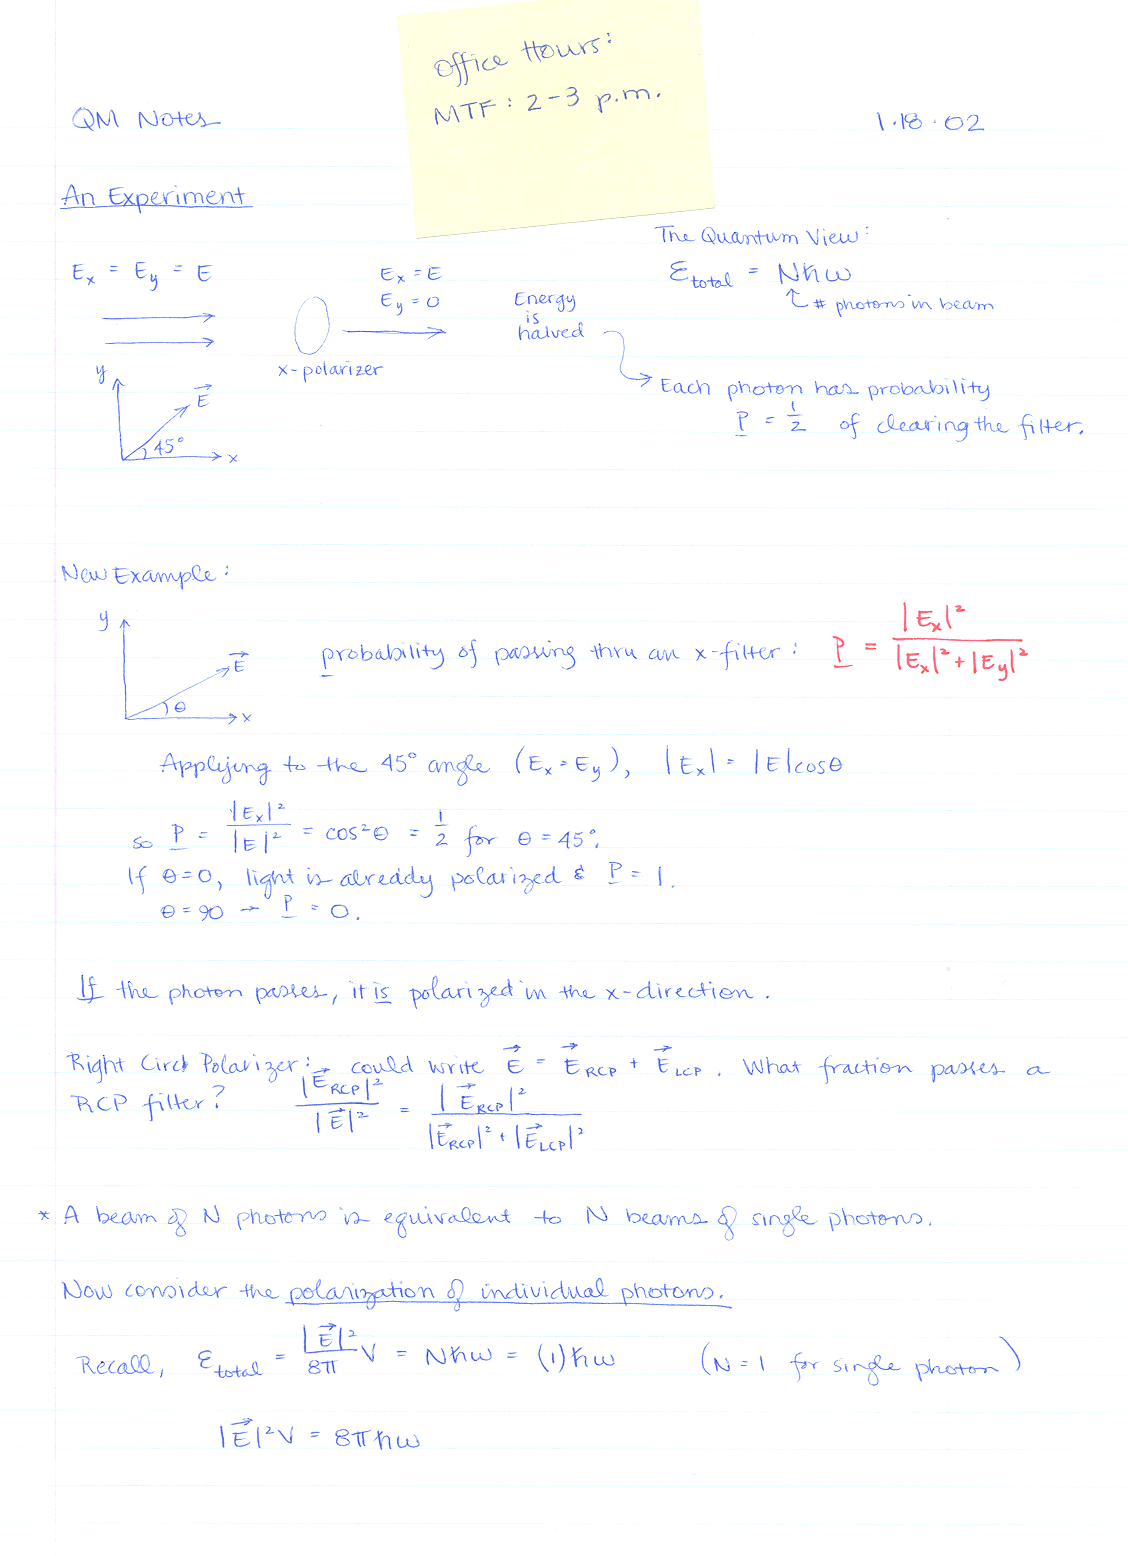 Office Hours:
MTF: 2-3 p.m.
QM Notes
1.18.02
An Experiment
Ex = Ey = E
Ex = E
Ey = 0
x-polarizer
Energy
is
halved
y
E⃗
45°
x
The Quantum View:
Ɛtotal = Nħω
# photons in beam
Each photon has probability
P = 1/2 of clearing the filter.
New Example:
y
E⃗
θ
x
probability of passing thru an x-filter: P = |Ex|² / |Ex|² + |Ey|²
Applying to the 45° angle (Ex = Ey), |Ex| = |E|cosθ
so P = |Ex|² / |E|² = cos²θ = 1/2 for θ = 45°.
If θ=0, light is already polarized & P = 1.
θ = 90 → P = 0.
If the photon passes, it is polarized in the x-direction.
Right Circ Polarizer: could write E⃗ = E⃗RCP + E⃗LCP. What fraction passes a
RCP filter? |E⃗RCP|² / |E⃗|² = |E⃗RCP|² / |E⃗RCP|² + |E⃗LCP|²
* A beam of N photons is equivalent to N beams of single photons.
Now consider the polarization of individual photons.
Recall, Ɛtotal = |E⃗|²/8π V = Nħω = (1)ħω (N = 1 for single photon)
|E⃗|²V = 8πħω